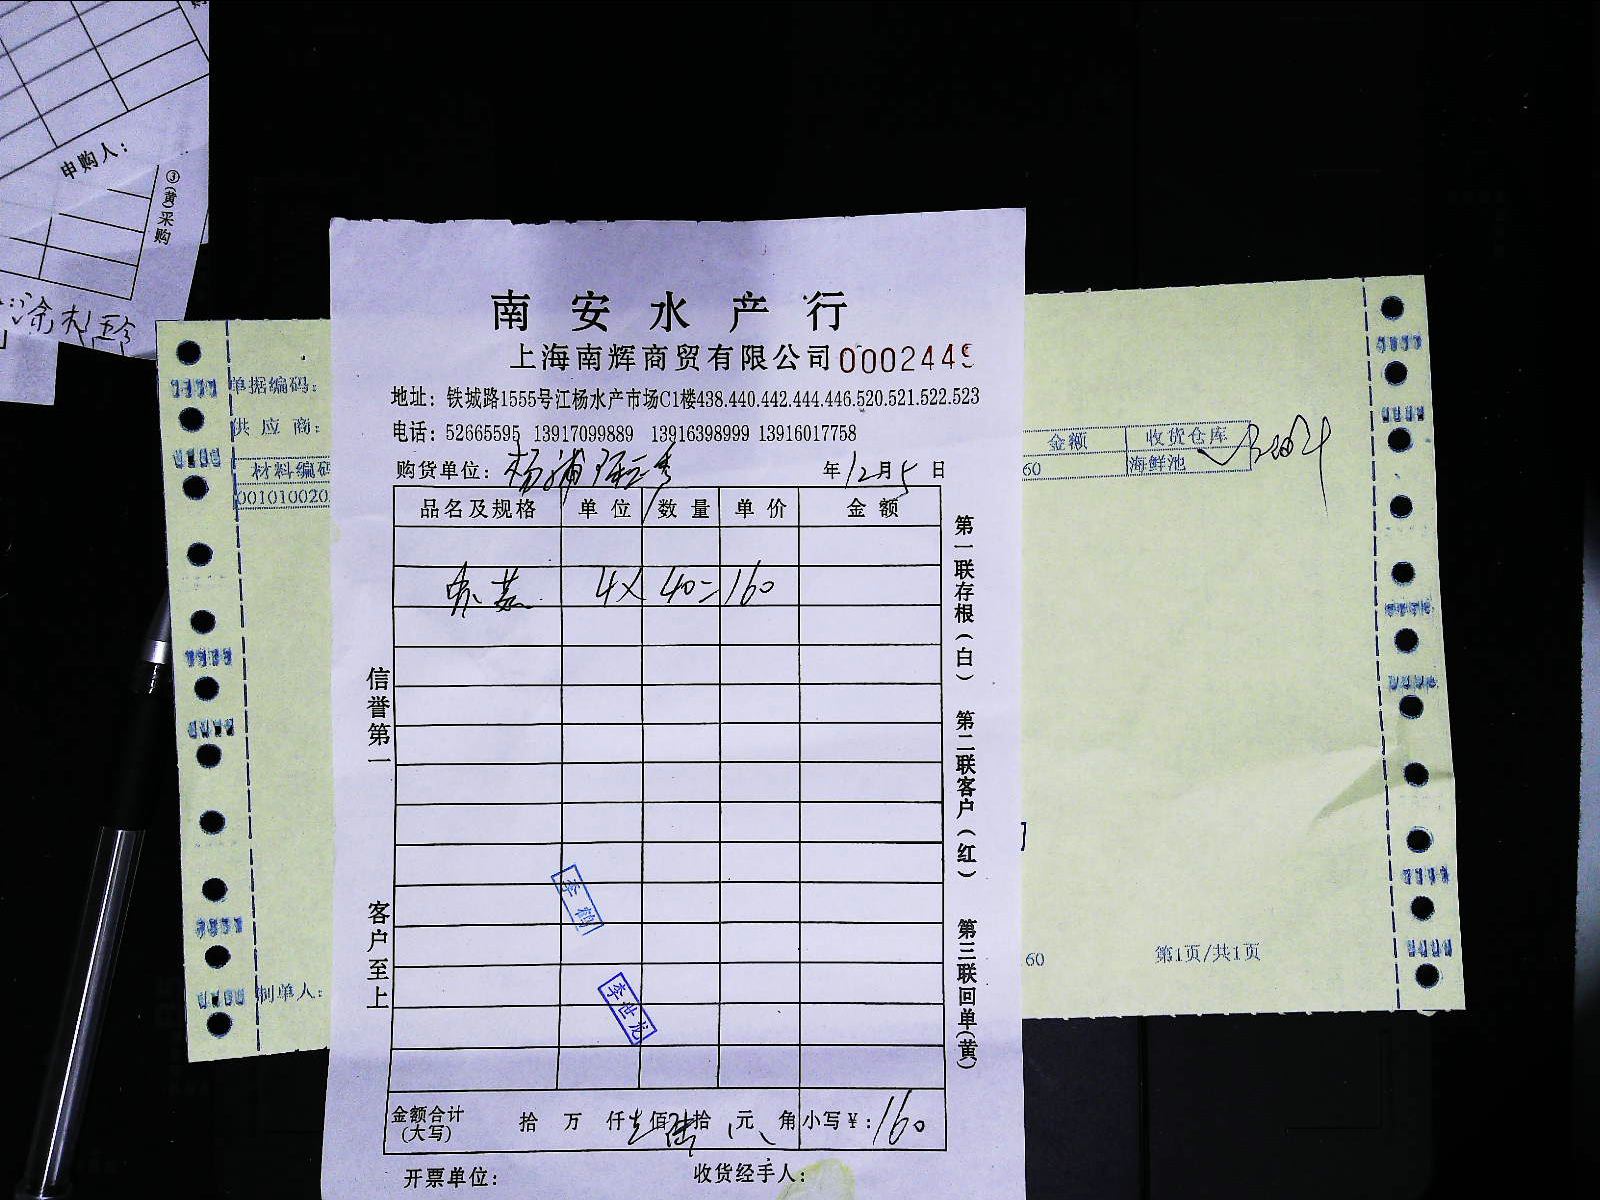 申购人：
③(黄)采购
南安水产行
上海南辉商贸有限公司 0002449
地址：铁城路1555号江杨水产市场C1楼438.440.442.444.446.520.521.522.523
电话：52665595 13917099889 13916398999 13916017758
购货单位：杨浦 年12月5日
品名及规格 单位 数量 单价 金额
4× 40=160
信誉第一
客户至上
第一联存根(白)
第二联客户(红)
第三联回单(黄)
李鹤
李世龙
金额合计(大写) 拾 万 仟 壹佰 陆拾 元 角 小写￥：160
开票单位：
收货经手人：
单据编码：
供应商：
材料编码
00101002
制单人：
金额 收货仓库
60 海鲜池
60
第1页/共1页